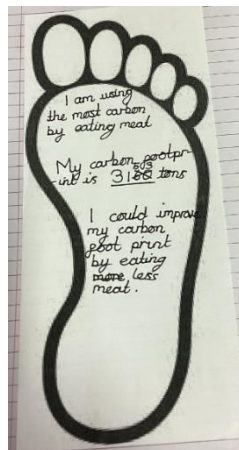 I am using
the most carbon
by eating meat
My carbon footpr-
int is 31 tons
I could improve
my carbon
foot print
by eating
more less
meat.